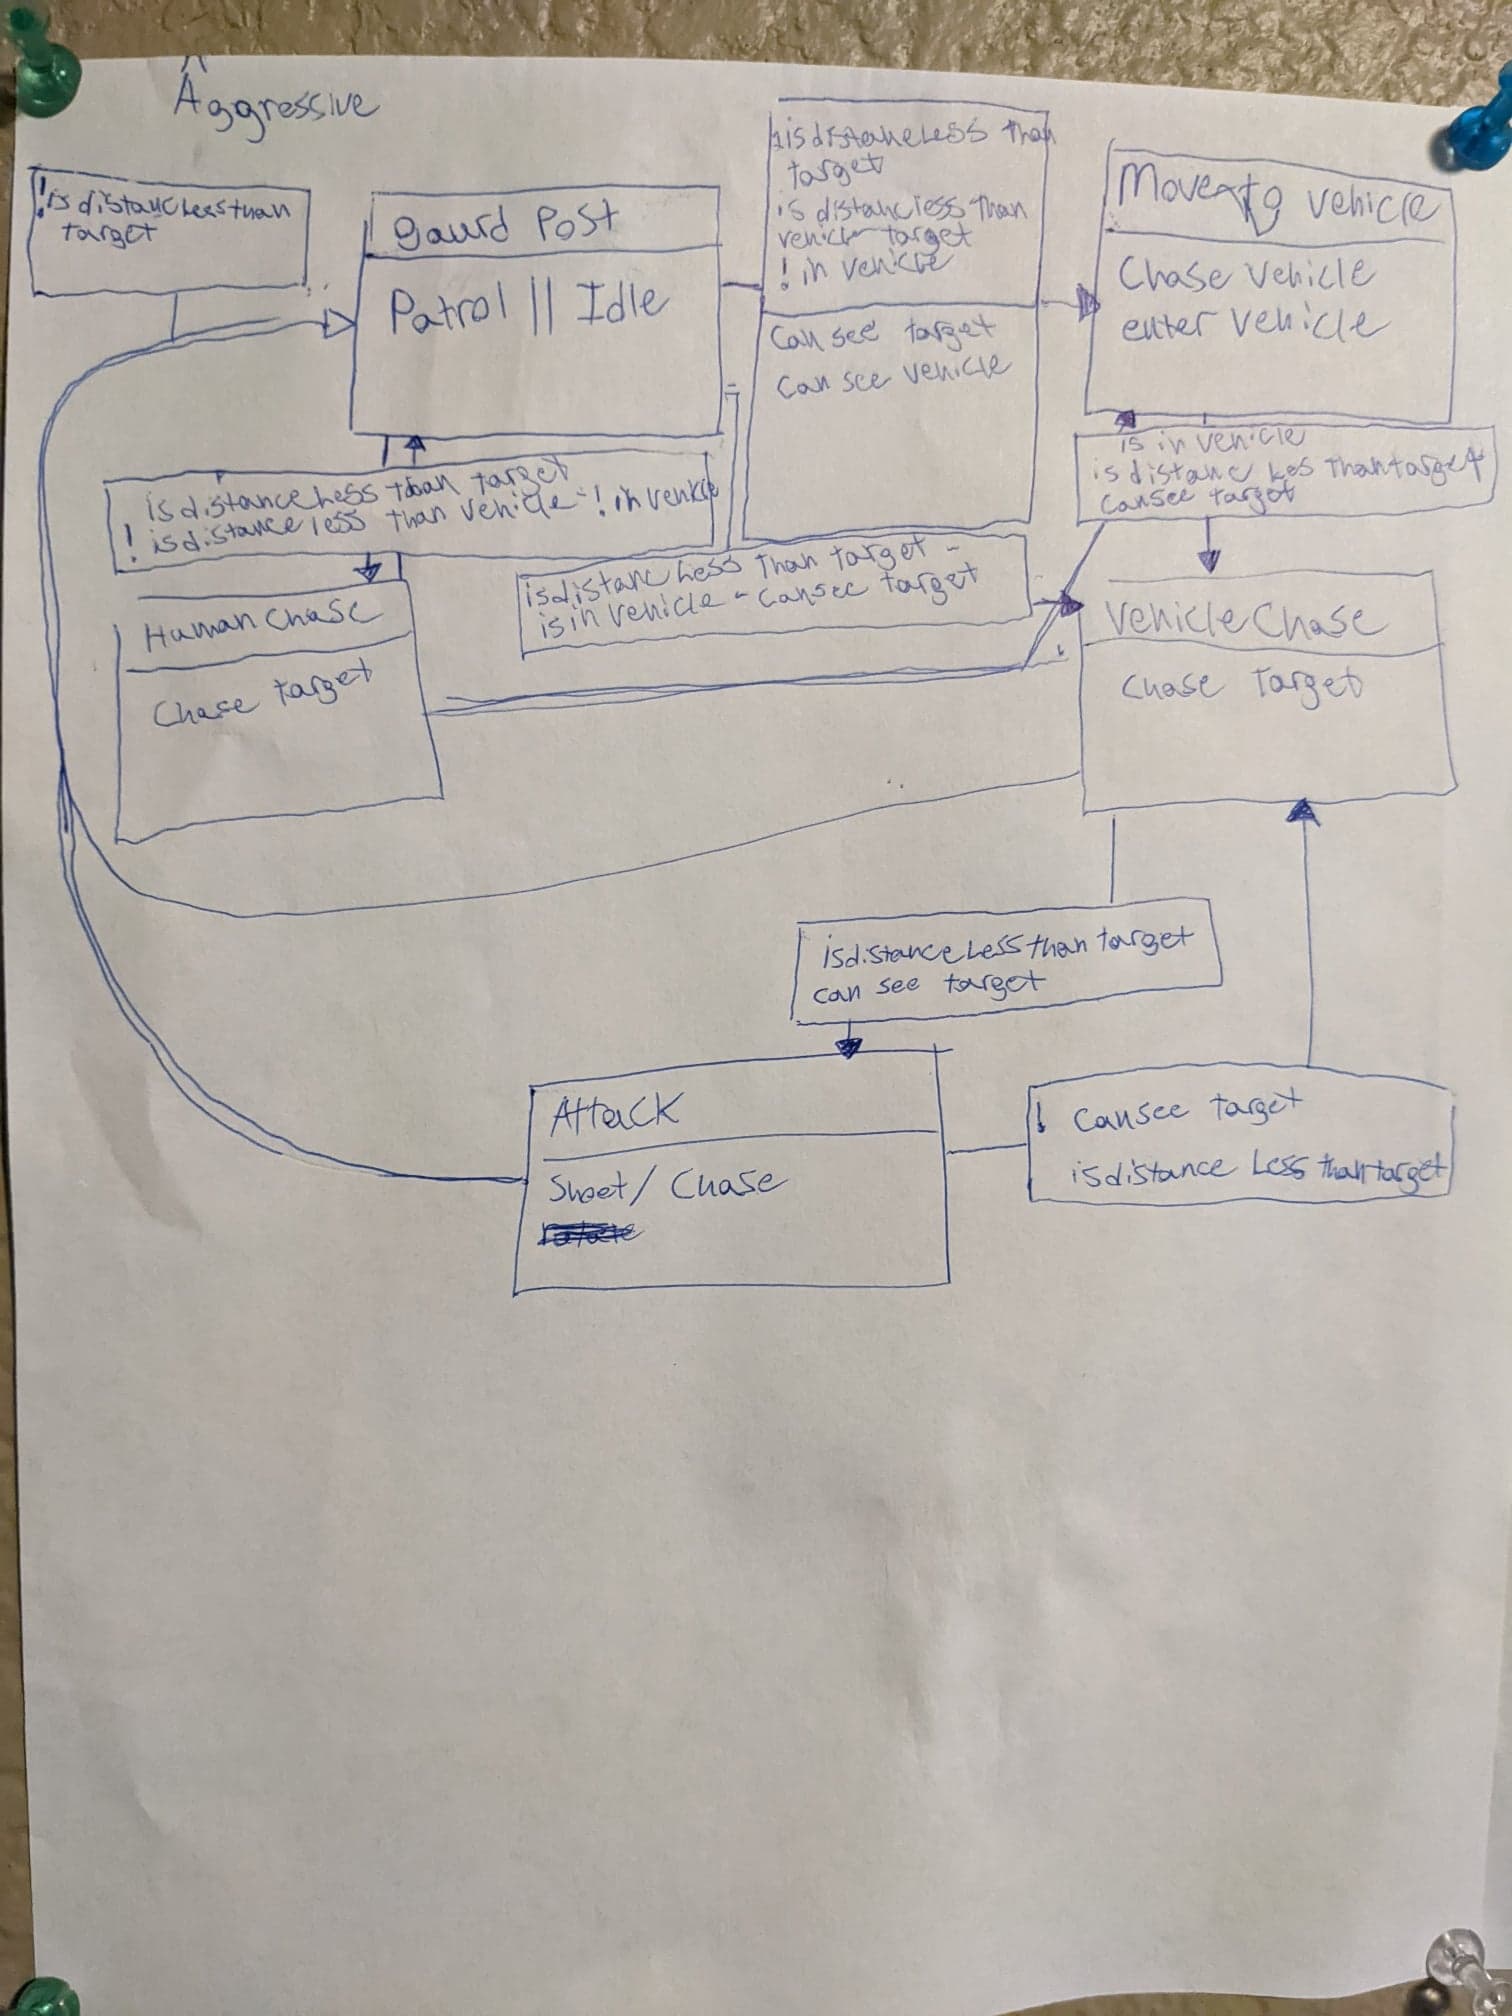 Aggressive
!is distance less than
target
gaurd Post
Patrol || Idle
is distance Less Than
target
is distanc less Than
vehicle target
! in vehicle
Can see target
Can see vehicle
Move to vehicle
Chase vehicle
enter vehicle
is in vehicle
is distanc Les Than target
cansee target
is distance Less than target
! is distance less than vehicle - ! in vehicle
is distanc Less Than target -
is in vehicle - cansee target
Human Chase
Chase target
Vehicle Chase
Chase Target
is distance Less than target
can see target
Attack
Shoot / Chase
! Cansee target
is distance Less than target